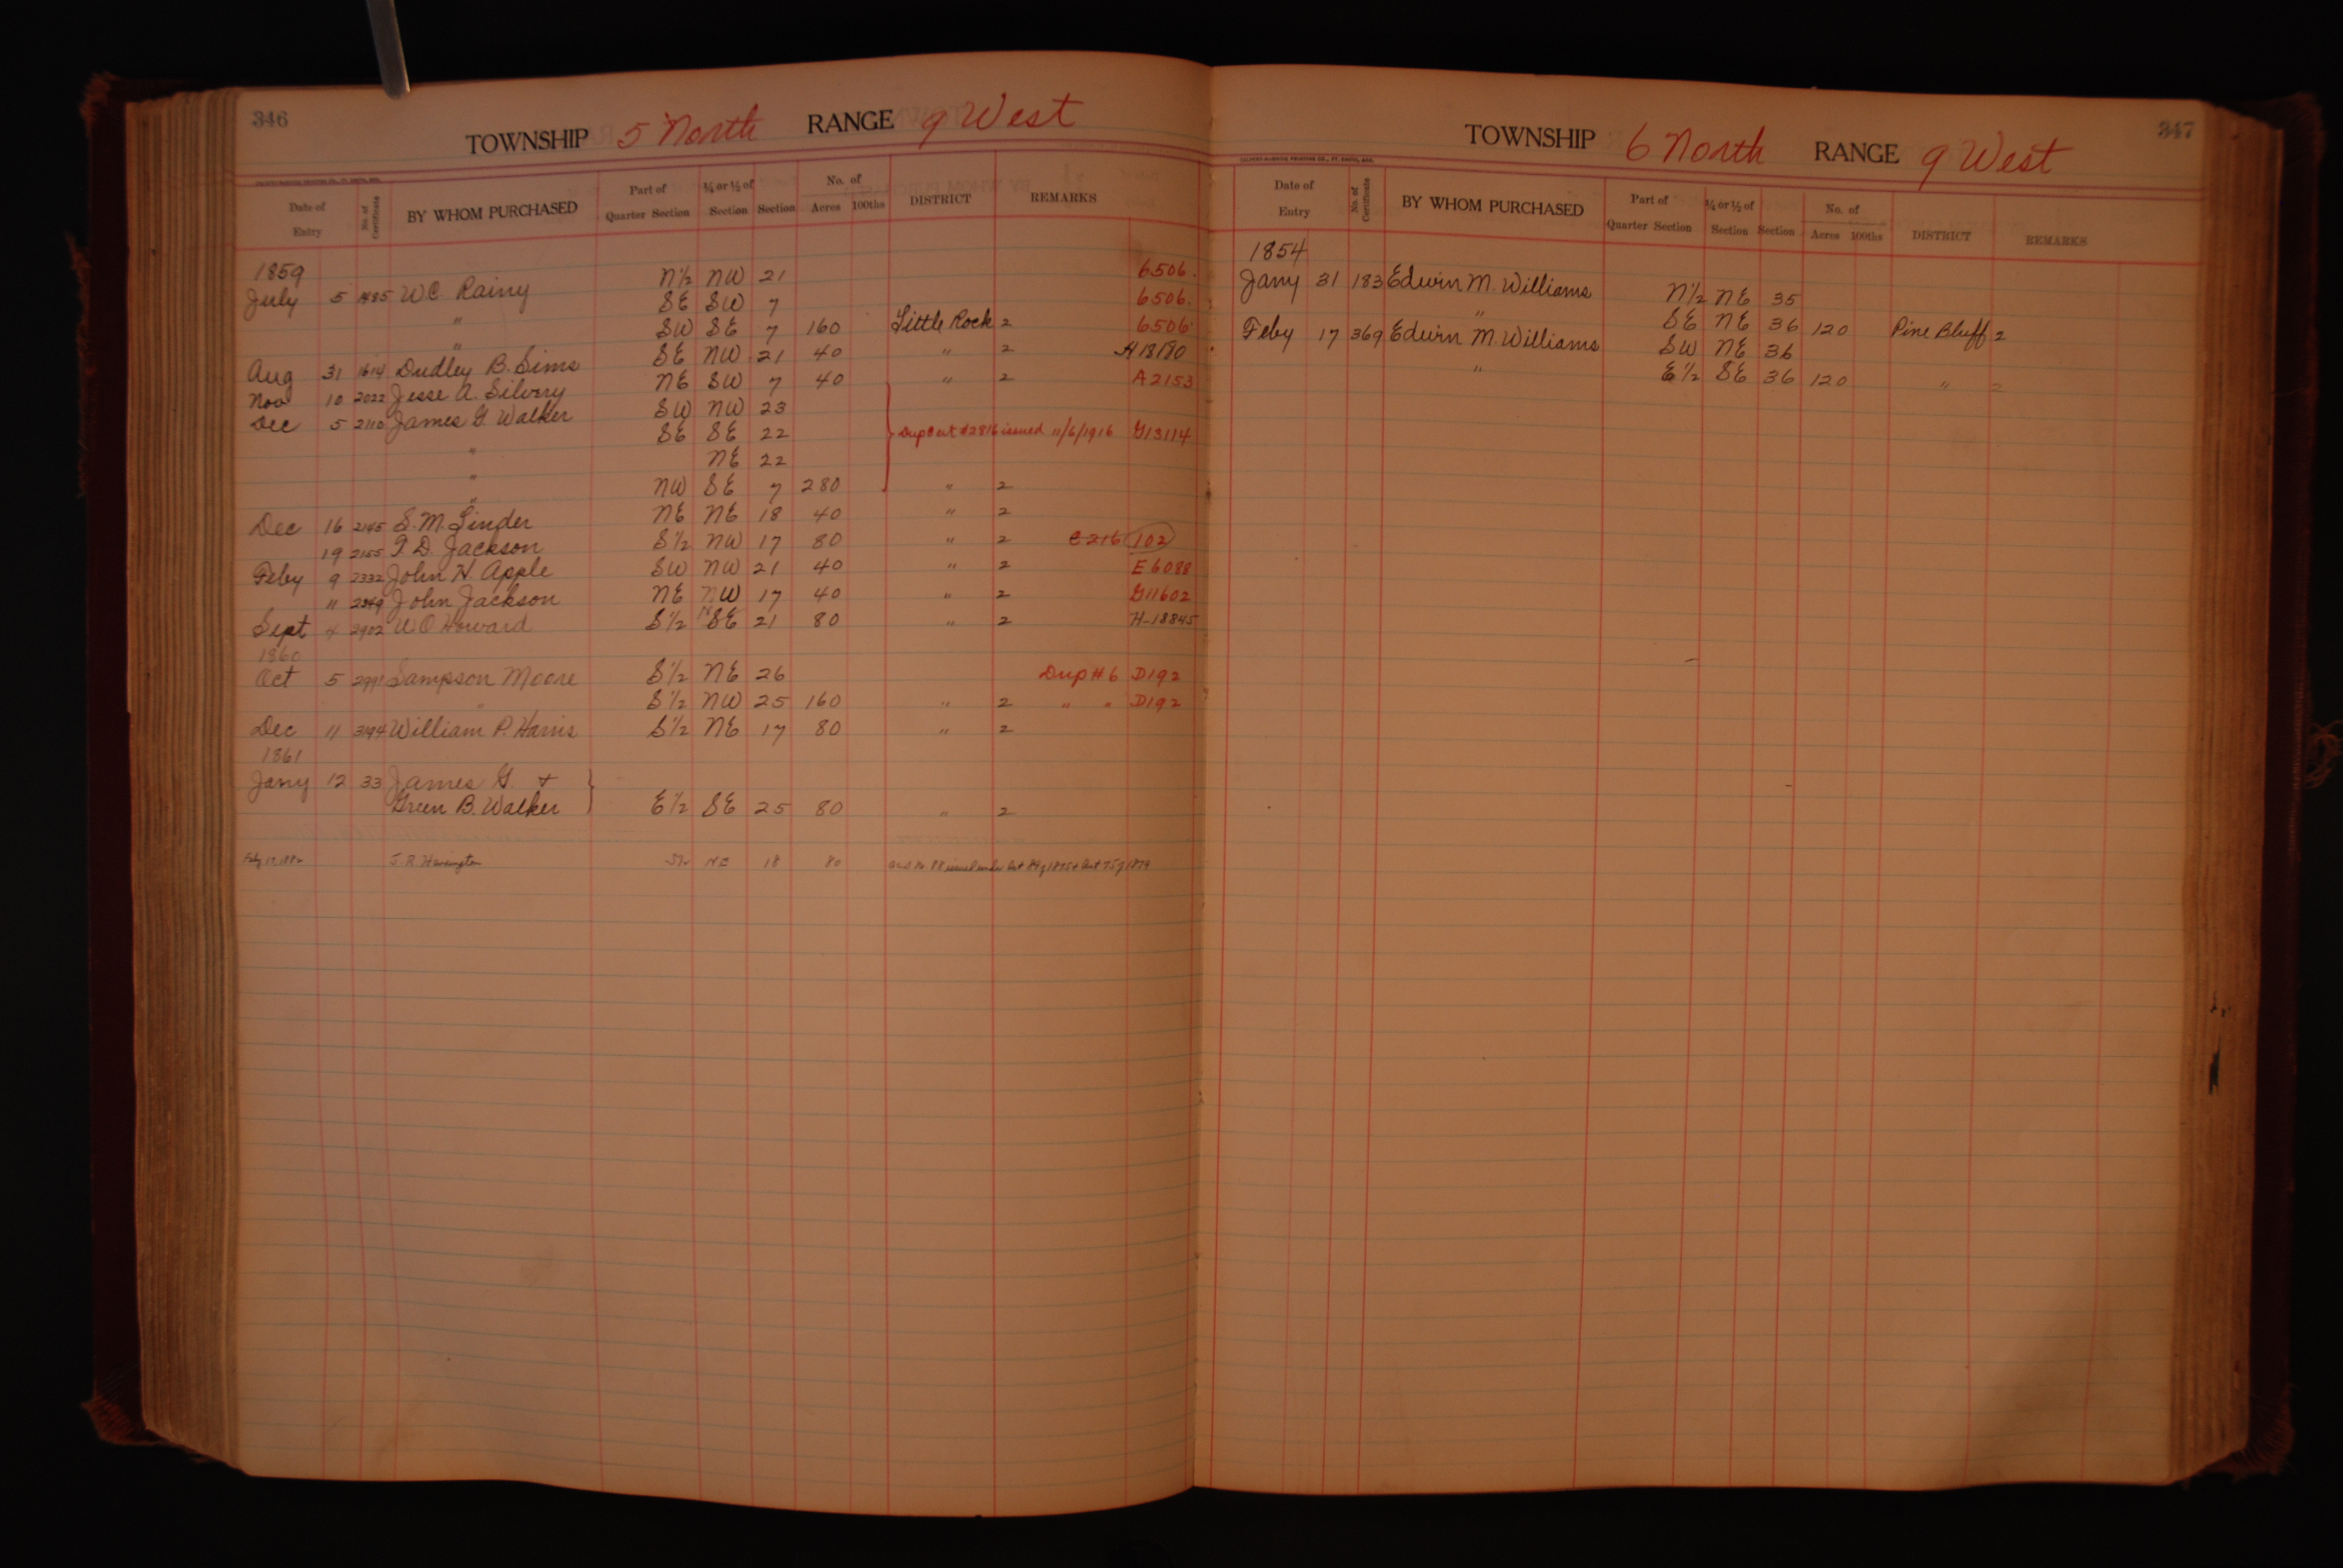 346
TOWNSHIP 5 North RANGE 9 West
Date of Entry No. of Certificate BY WHOM PURCHASED Part of Quarter Section ¼ or ½ of Section Section No. of Acres 100ths DISTRICT REMARKS
1859
July 5 1485 W.C. Rainy N½ NW 21 6506.
" SE SW 7 6506.
" SW SE 7 160 Little Rock 2 6506
Aug 31 1614 Dudley B. Sims SE NW 21 40 " 2 H18180
Nov 10 2022 Jesse A. Silvery NE SW 7 40 " 2 A2153
Dec 5 2110 James G. Walker SW NW 23
" SE SE 22 Dup Cert #2816 issued 11/6/1916 G13114
" NE 22
" NW SE 7 280 " 2
Dec 16 2145 S.M. Linder NE NE 18 40 " 2
19 2155 J.D. Jackson S½ NW 17 80 " 2 C216 102
Feby 9 2332 John H. Apple SW NW 21 40 " 2 E6088
" 2349 John Jackson NE NW 17 40 " 2 G11602
Sept 4 2902 W.O. Howard S½ SE 21 80 " 2 H-18845
1860
Oct 5 2991 Sampson Moore S½ NE 26 Dup #6 D192
" S½ NW 25 160 " 2 " " D192
Dec 11 3194 William P. Harris S½ NE 17 80 " 2
1861
Jany 12 33 James G. &
Green B. Walker E½ SE 25 80 " 2
J.R. Harrington S½ NE 18 80
347
TOWNSHIP 6 North RANGE 9 West
Date of Entry No. of Certificate BY WHOM PURCHASED Part of Quarter Section ¼ or ½ of Section Section No. of Acres 100ths DISTRICT REMARKS
1854
Jany 31 183 Edwin M. Williams N½ NE 35
" SE NE 36 120 Pine Bluff 2
Feby 17 369 Edwin M. Williams SW NE 36
" E½ SE 36 120 " 2